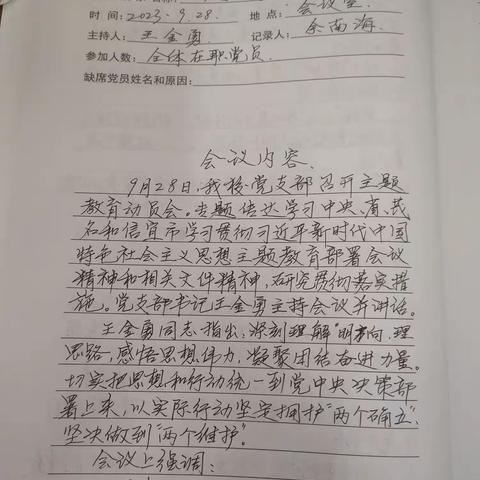 时 间: 2023.9.28. 地 点: 会议室.
主持人: 王金勇 记录人: 余南海.
参加人数: 全体在职党员.
缺席党员姓名和原因:
会议内容.
9月28日,我校党支部召开主题
教育动员会。专题传达学习中央、省、茂
名和信宜市学习贯彻习近平新时代中国
特色社会主义思想主题教育部署会议
精神和相关文件精神,研究贯彻落实措
施。党支部书记王金勇主持会议并讲话。
王金勇同志指出:深刻理解"明方向、理
思路,感悟思想伟力,凝聚团结奋进力量。
切实把思想和行动统一到党中央决策部
署上来,以实际行动坚定拥护"两个确立"、
坚决做到"两个维护"。
会议上强调: